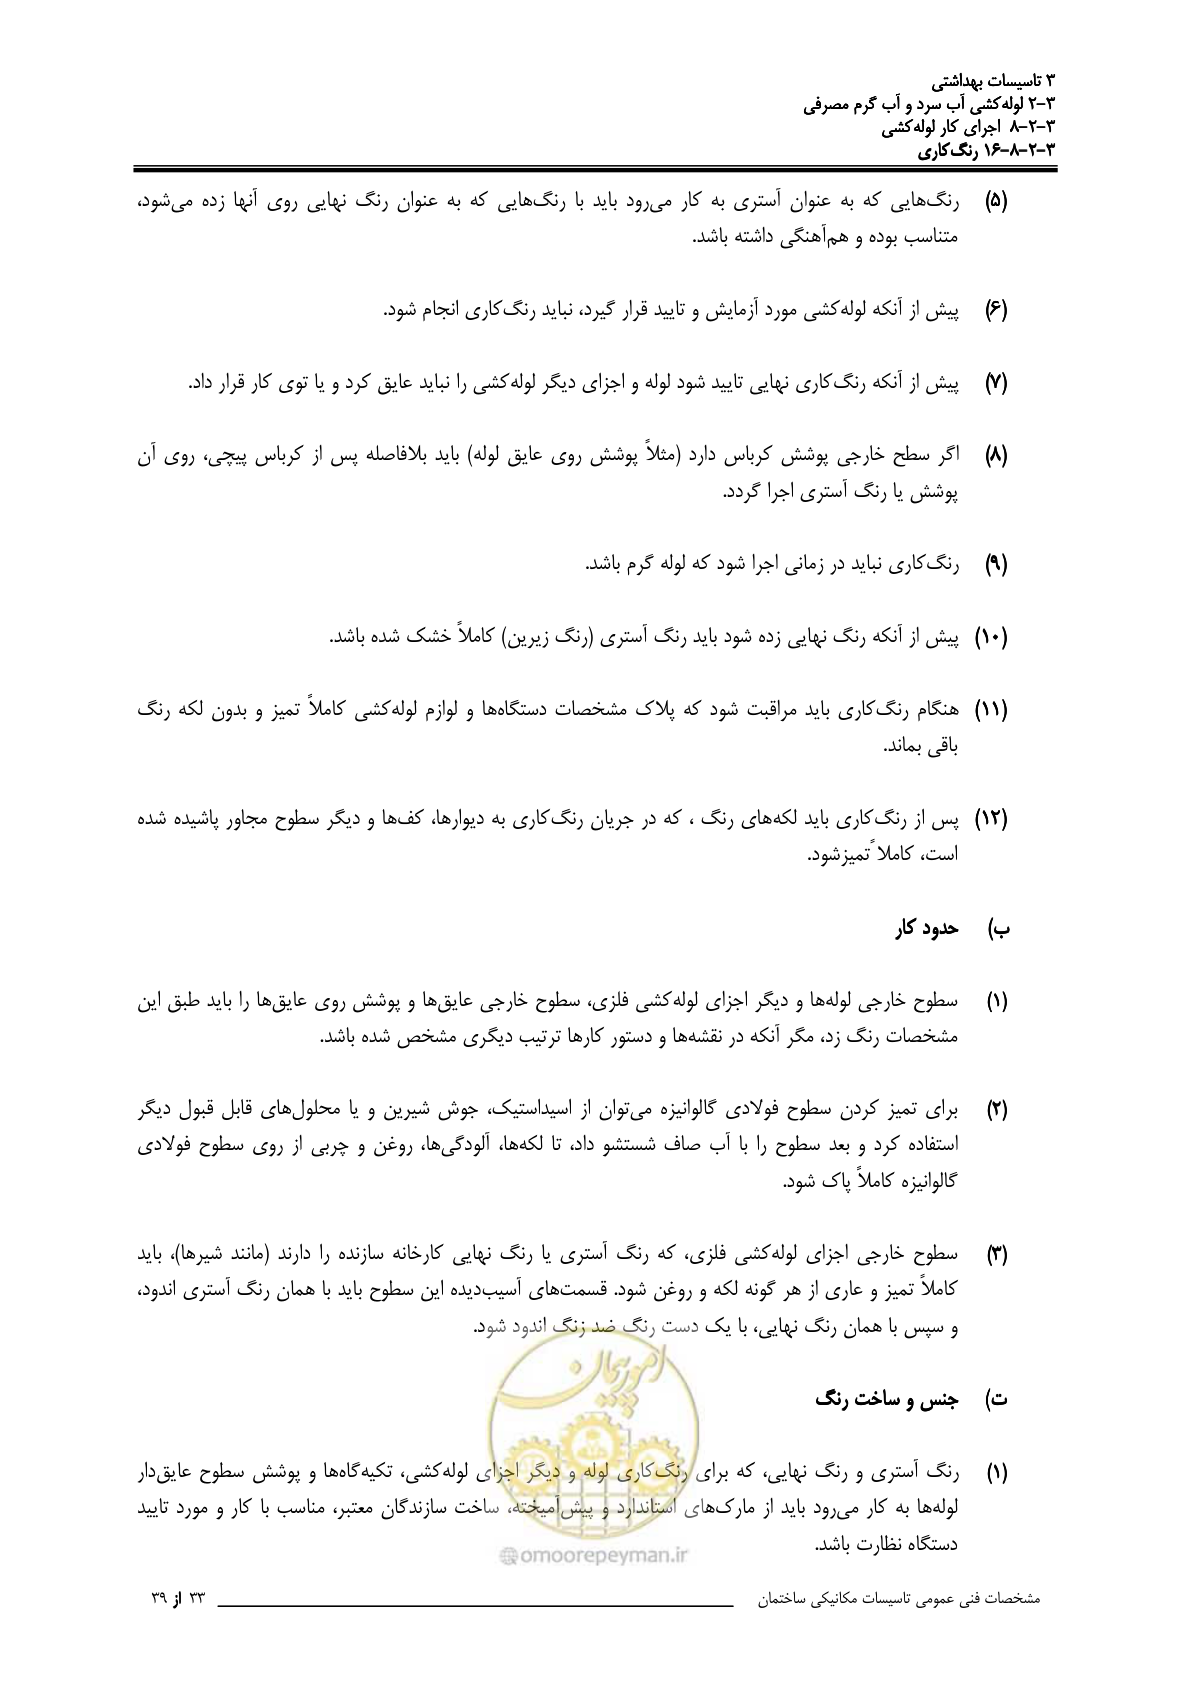 ۳ تاسیسات بهداشتی
۳-۲ لوله‌کشی آب سرد و آب گرم مصرفی
۳-۲-۸ اجرای کار لوله‌کشی
۳-۲-۸-۱۶ رنگ‌کاری
(۵) رنگ‌هایی که به عنوان آستری به کار می‌رود باید با رنگ‌هایی که به عنوان رنگ نهایی روی آنها زده می‌شود،
متناسب بوده و هم‌آهنگی داشته باشد.
(۶) پیش از آنکه لوله‌کشی مورد آزمایش و تایید قرار گیرد، نباید رنگ‌کاری انجام شود.
(۷) پیش از آنکه رنگ‌کاری نهایی تایید شود لوله و اجزای دیگر لوله‌کشی را نباید عایق کرد و یا توی کار قرار داد.
(۸) اگر سطح خارجی پوشش کرباس دارد (مثلاً پوشش روی عایق لوله) باید بلافاصله پس از کرباس پیچی، روی آن
پوشش یا رنگ آستری اجرا گردد.
(۹) رنگ‌کاری نباید در زمانی اجرا شود که لوله گرم باشد.
(۱۰) پیش از آنکه رنگ نهایی زده شود باید رنگ آستری (رنگ زیرین) کاملاً خشک شده باشد.
(۱۱) هنگام رنگ‌کاری باید مراقبت شود که پلاک مشخصات دستگاه‌ها و لوازم لوله‌کشی کاملاً تمیز و بدون لکه رنگ
باقی بماند.
(۱۲) پس از رنگ‌کاری باید لکه‌های رنگ ، که در جریان رنگ‌کاری به دیوارها، کف‌ها و دیگر سطوح مجاور پاشیده شده
است، کاملا ًتمیزشود.
ب) حدود کار
(۱) سطوح خارجی لوله‌ها و دیگر اجزای لوله‌کشی فلزی، سطوح خارجی عایق‌ها و پوشش روی عایق‌ها را باید طبق این
مشخصات رنگ زد، مگر آنکه در نقشه‌ها و دستور کارها ترتیب دیگری مشخص شده باشد.
(۲) برای تمیز کردن سطوح فولادی گالوانیزه می‌توان از اسیداستیک، جوش شیرین و یا محلول‌های قابل قبول دیگر
استفاده کرد و بعد سطوح را با آب صاف شستشو داد، تا لکه‌ها، آلودگی‌ها، روغن و چربی از روی سطوح فولادی
گالوانیزه کاملاً پاک شود.
(۳) سطوح خارجی اجزای لوله‌کشی فلزی، که رنگ آستری یا رنگ نهایی کارخانه سازنده را دارند (مانند شیرها)، باید
کاملاً تمیز و عاری از هر گونه لکه و روغن شود. قسمت‌های آسیب‌دیده این سطوح باید با همان رنگ آستری اندود،
و سپس با همان رنگ نهایی، با یک دست رنگ ضد زنگ اندود شود.
امور پیمان
ت) جنس و ساخت رنگ
(۱) رنگ آستری و رنگ نهایی، که برای رنگ‌کاری لوله و دیگر اجزای لوله‌کشی، تکیه‌گاه‌ها و پوشش سطوح عایق‌دار
لوله‌ها به کار می‌رود باید از مارک‌های استاندارد و پیش‌آمیخته، ساخت سازندگان معتبر، مناسب با کار و مورد تایید
دستگاه نظارت باشد.
@omoorepeyman.ir
مشخصات فنی عمومی تاسیسات مکانیکی ساختمان ۳۳ از ۳۹